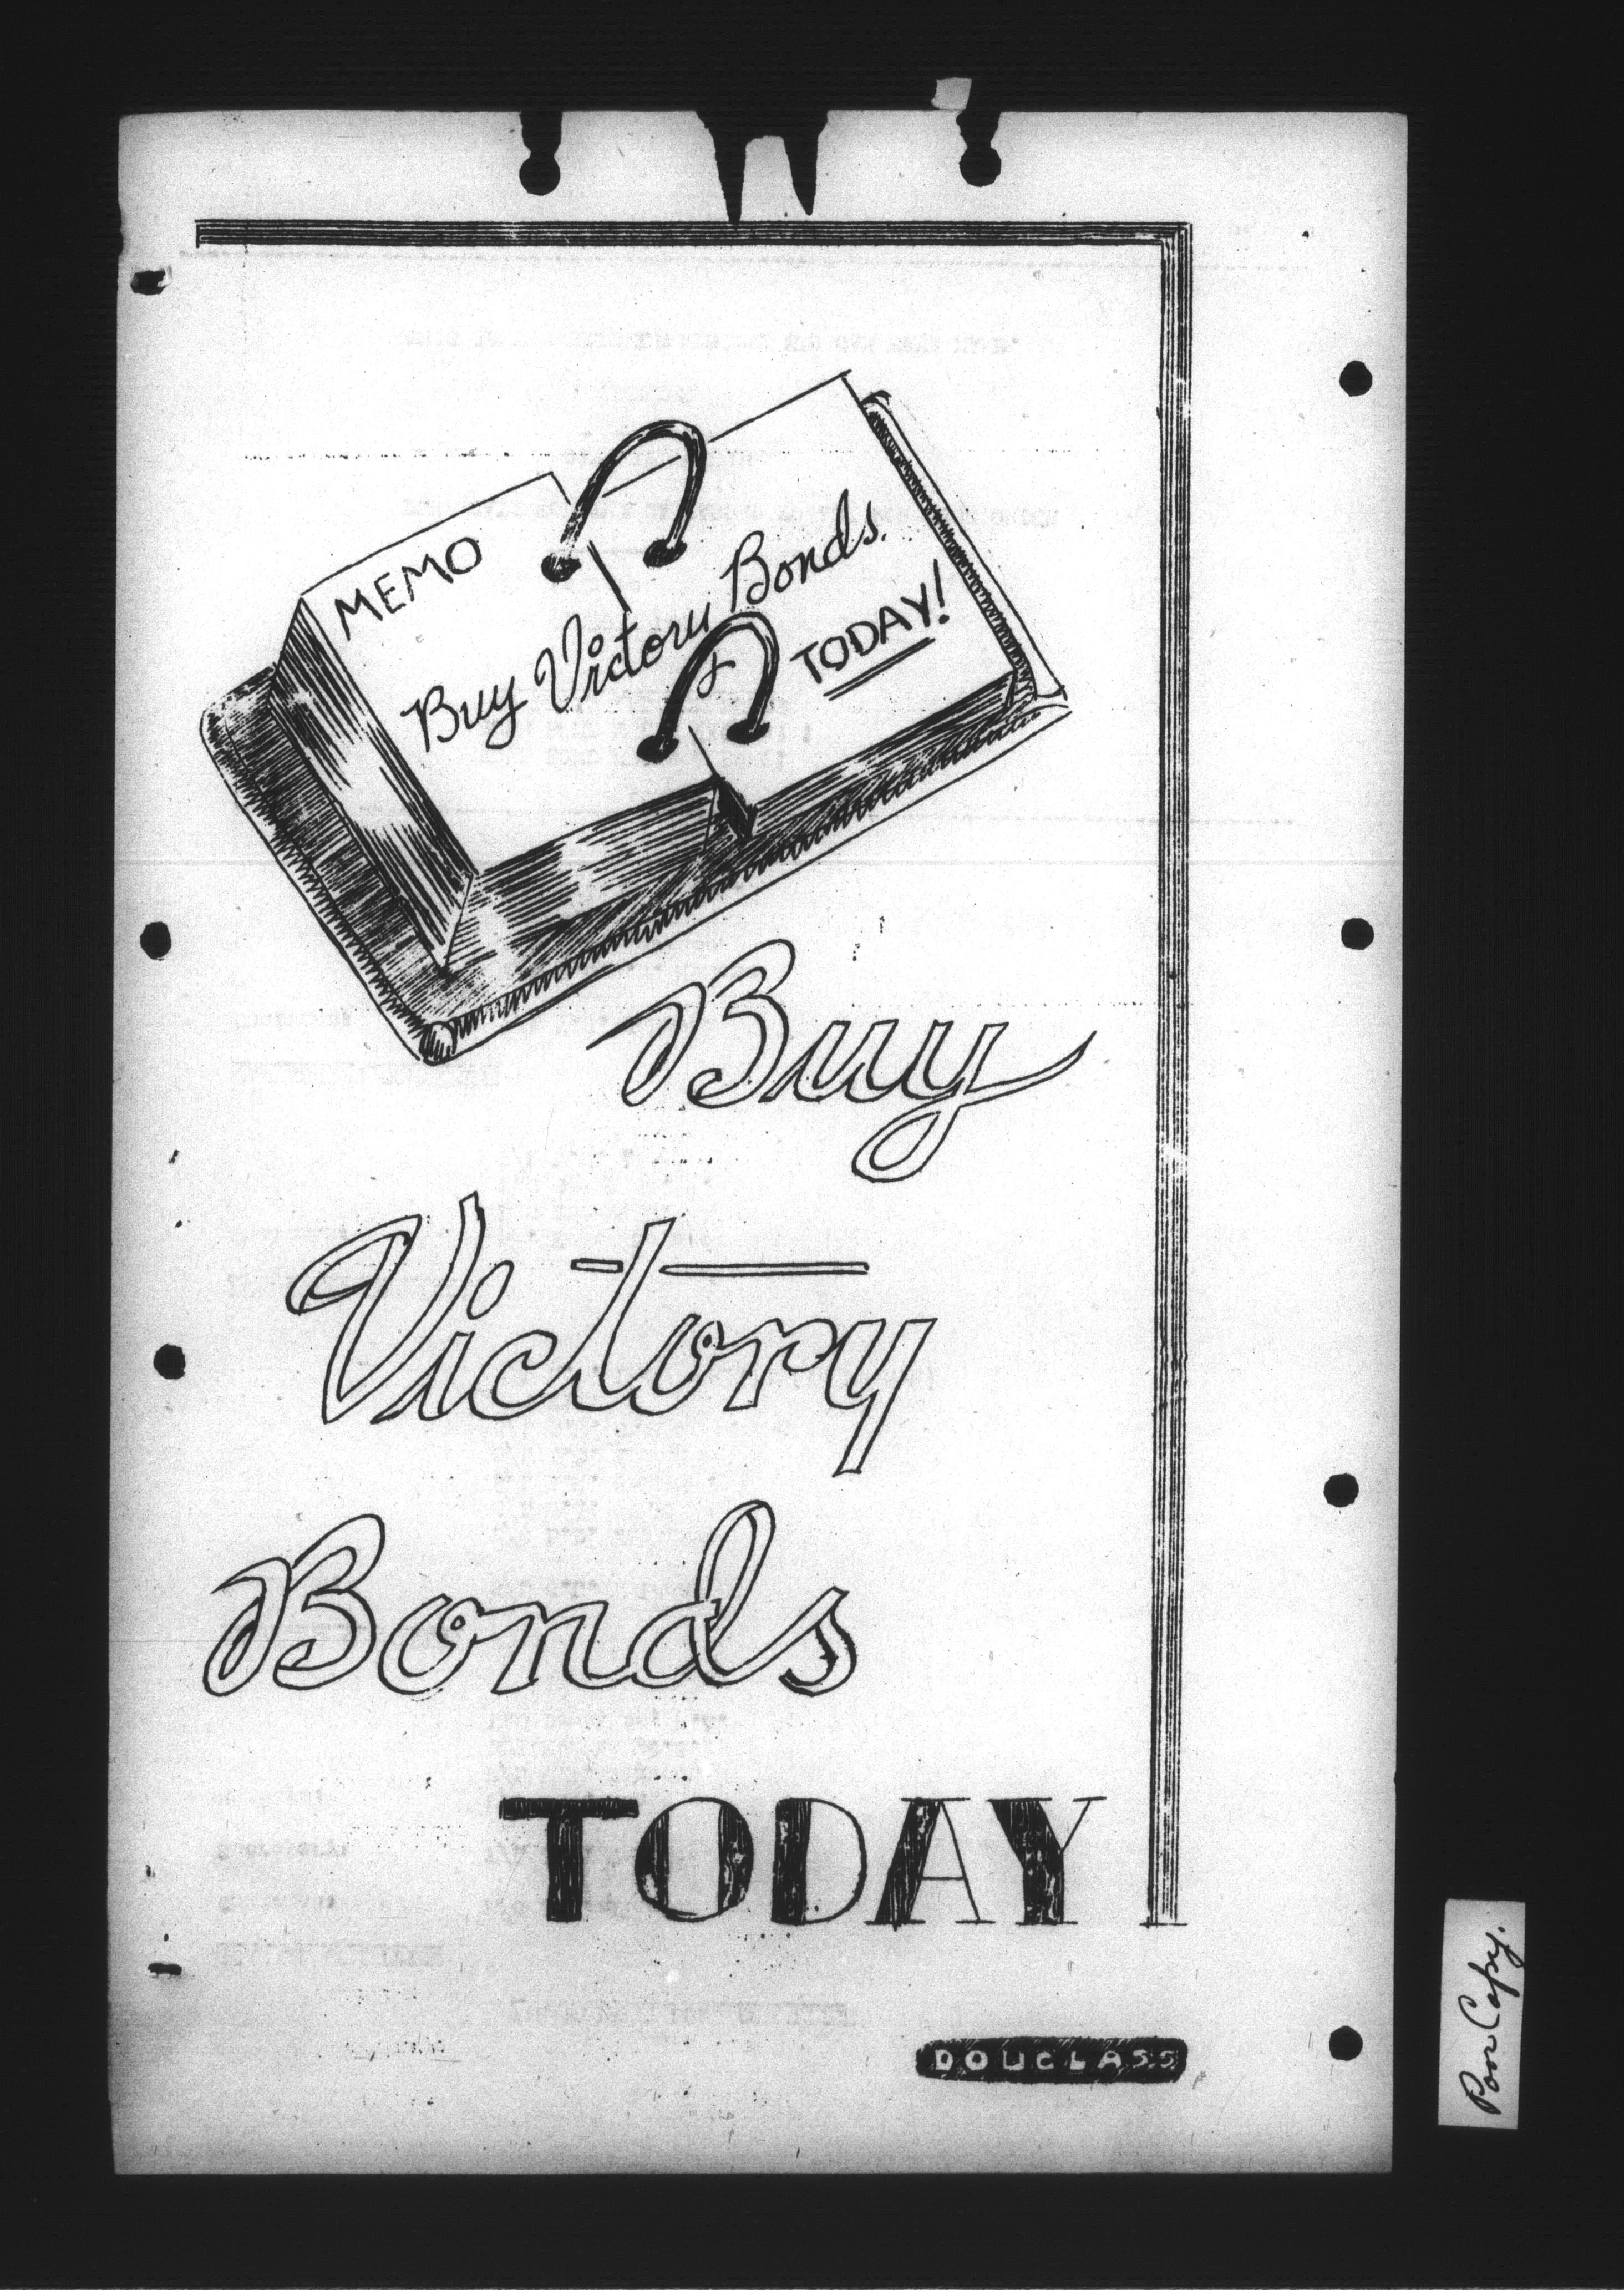 MEMO
Buy Victory Bonds.
TODAY!
Buy
Victory
Bonds
TODAY
DOUGLASS
Poor Copy.